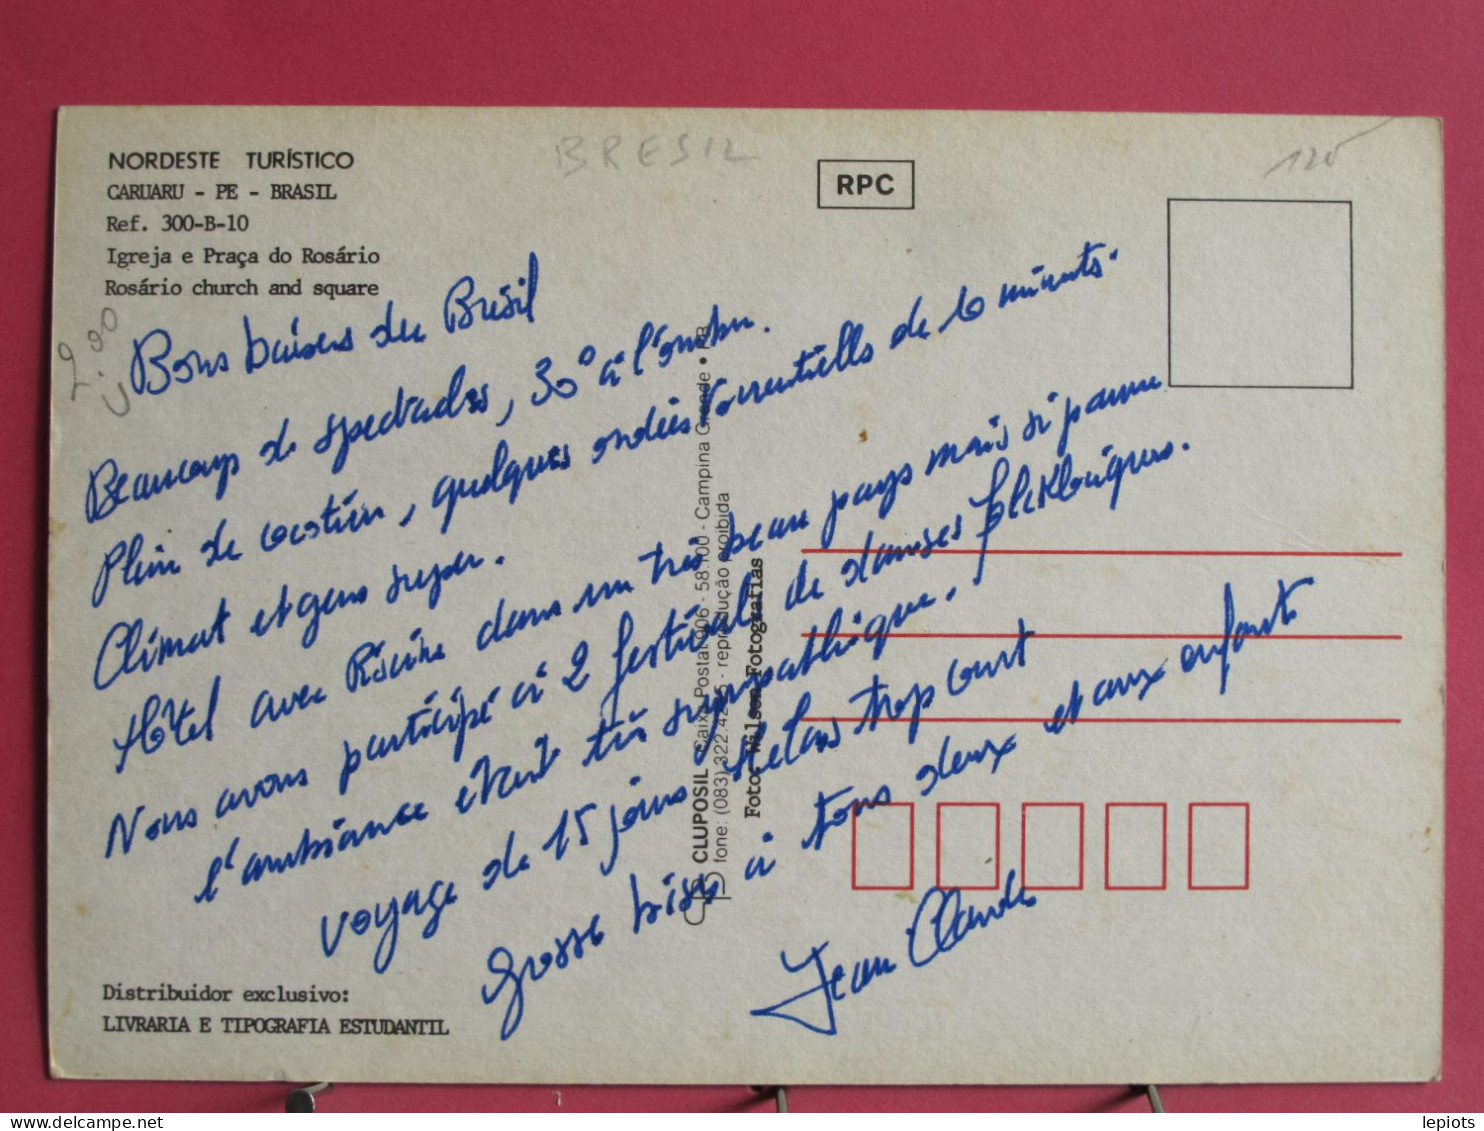 BRESIL
120
NORDESTE TURÍSTICO
CARUARU - PE - BRASIL
Ref. 300-B-10
Igreja e Praça do Rosário
Rosário church and square
RPC
2.00
Bons baisers du Brésil
Beaucoup de spectacles, 30° à l'ombre.
Plein de cocotiers, quelques ondées torrentielles de 10 minutes.
Climat et gens super.
Hôtel avec Piscine dans un très beau pays mais si pauvre
Nous avons participé à 2 festivals de danses folkloriques.
l'ambiance était très sympathique.
voyage de 15 jours hélas trop court
Grosse bises à tous deux et aux enfants
Jean Claude
CLUPOSIL - Caixa Postal 906 - 58.100 - Campina Grande • PB
fone: (083) 322 - reprodução proibida
Foto: Wilson Fotografias
Distribuidor exclusivo:
LIVRARIA E TIPOGRAFIA ESTUDANTIL
delcampe.net
lepiots